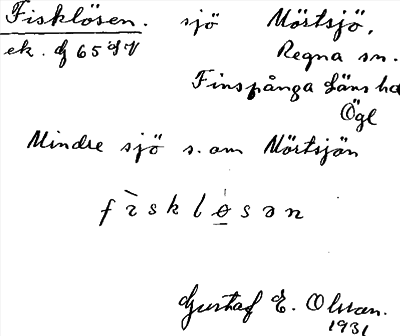 Fisklösen. sjö Mörtsjö,
ek. bl 65 SV Regna sn.
Finspånga läns hd
Ögl
Mindre sjö s. om Mörtsjön
fìskløsən
Gustaf E. Olsson.
1931